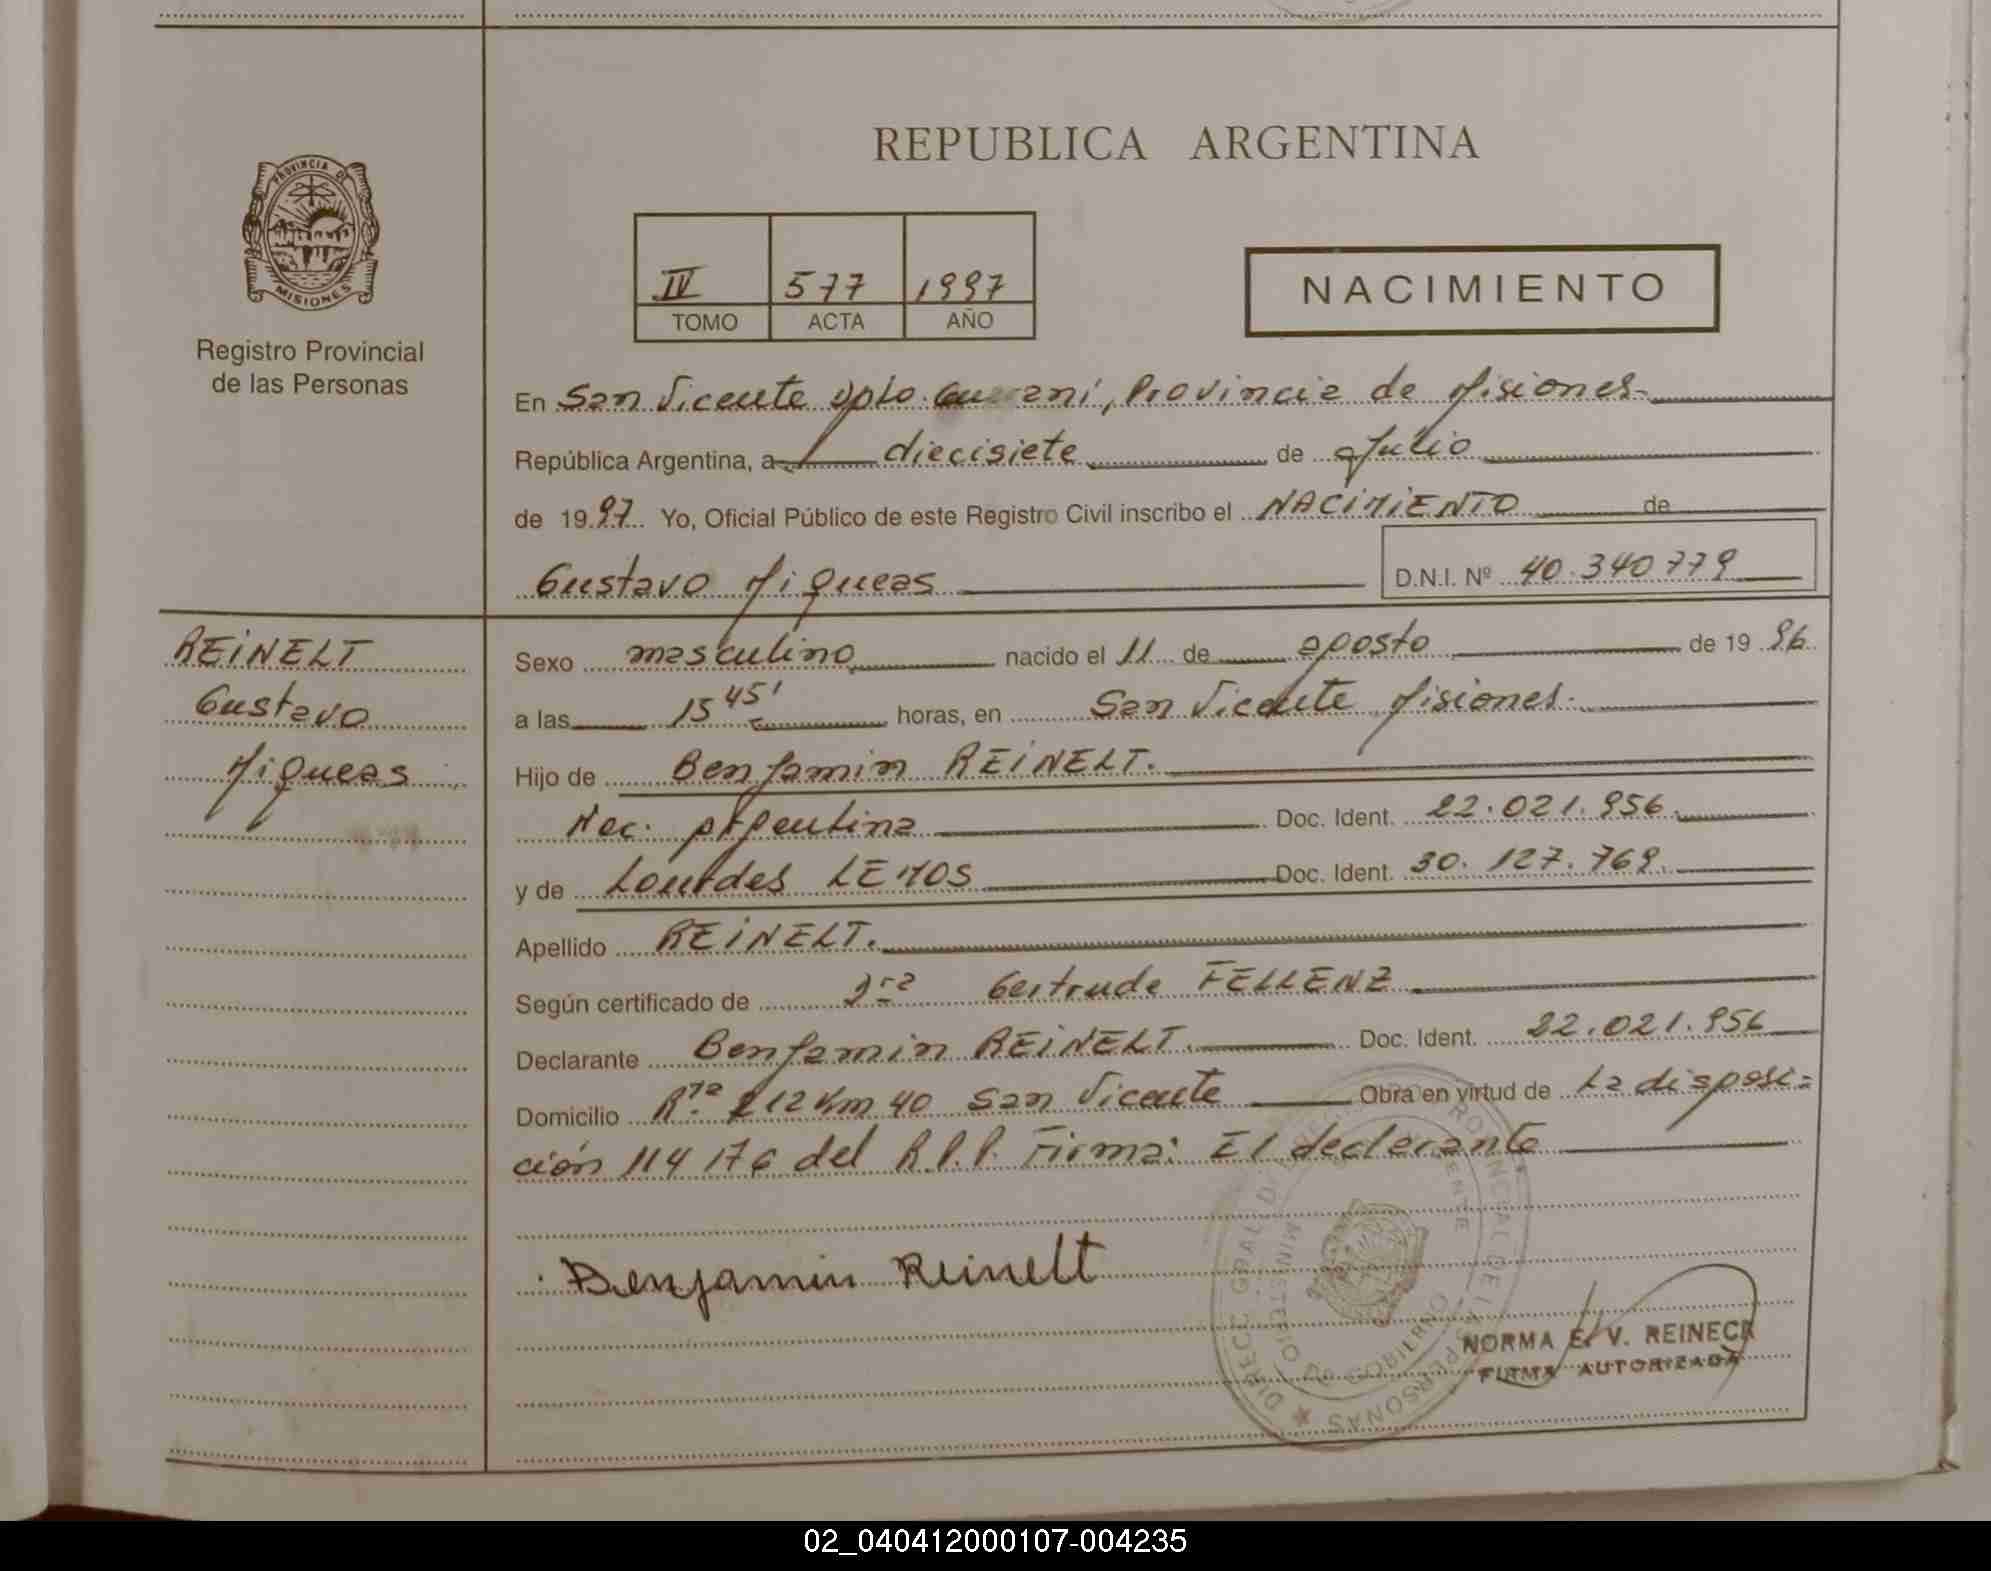 PROVINCIA DE
MISIONES
Registro Provincial
de las Personas
REPUBLICA ARGENTINA
IV 577 1997
TOMO ACTA AÑO
NACIMIENTO
En San Vicente Dpto. Guaraní, Provincia de Misiones-
República Argentina, a diecisiete de Julio
de 1997 Yo, Oficial Público de este Registro Civil inscribo el NACIMIENTO de
Gustavo Miqueas D.N.I. Nº 40.340.779
REINELT
Gustavo
Miqueas
Sexo masculino nacido el 11 de agosto de 1996
a las 15 45' horas, en San Vicente Misiones.
Hijo de Benjamin REINELT.
Nac. Argentina Doc. Ident. 22.021.956
y de Lourdes LEMOS Doc. Ident. 30.127.769.
Apellido REINELT.
Según certificado de Dra Gertrude FELLENZ
Declarante Benjamin REINELT. Doc. Ident. 22.021.956
Domicilio Rta 212 Km 40 San Vicente Obra en virtud de La disposi-
ción 114 176 del R.P.P. Firma: El declarante
Benjamin Reinelt
NORMA E. V. REINECK
FIRMA AUTORIZADA
02_040412000107-004235